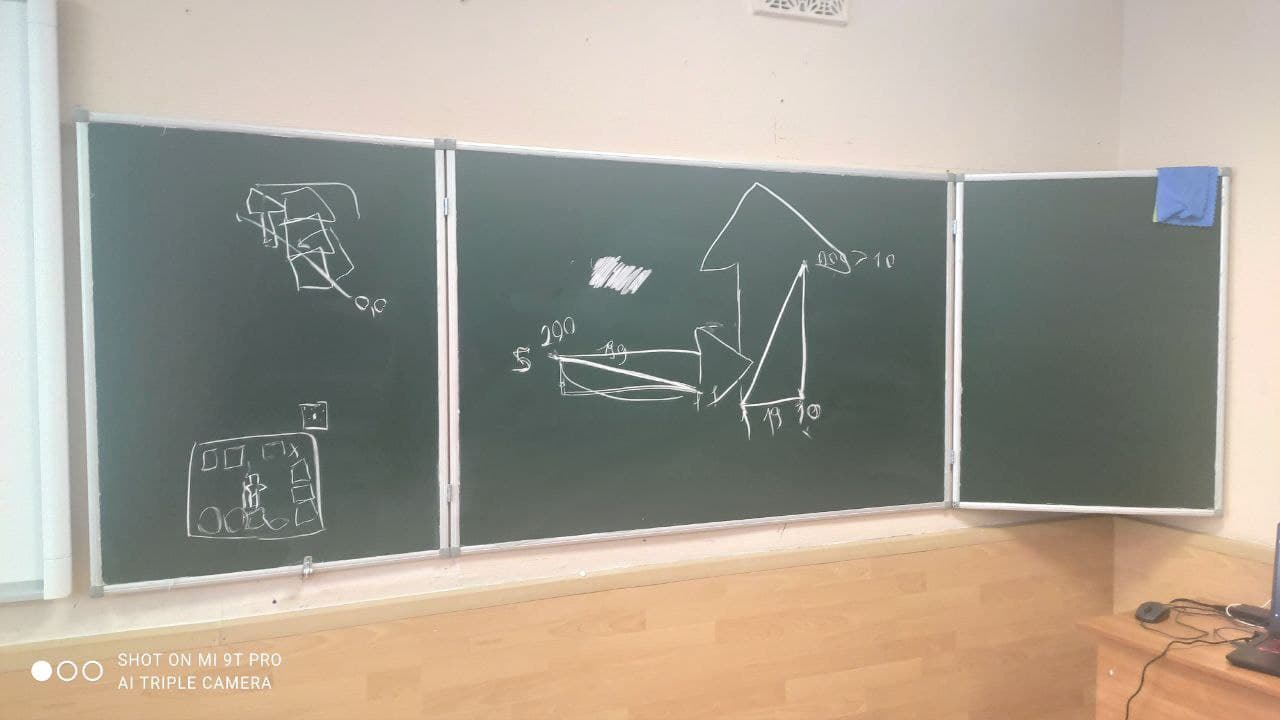 0,0
200
5
199
> 10
19
10
SHOT ON MI 9T PRO
AI TRIPLE CAMERA